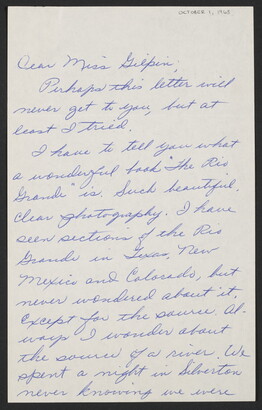 OCTOBER 1, 1963
Dear Miss Gilpin;
Perhaps this letter will
never get to you, but at
least I tried.
I have to tell you what
a wonderful book "The Rio
Grande" is. Such beautiful,
clear photography. I have
seen sections of the Rio
Grande in Texas, New
Mexico and Colorado, but
never wondered about it,
except for the source. Al-
ways I wonder about
the source of a river. We
spent a night in Silverton
never knowing we were